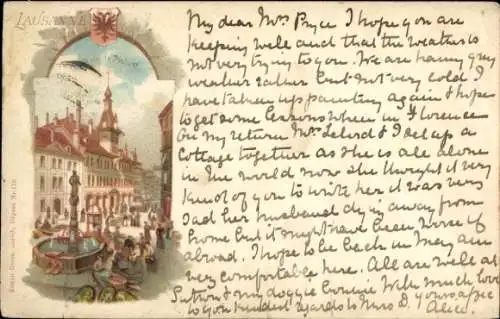 LAUSANNE
My dear Mrs Pryce I hope you are
keeping well and that the weather is
not very trying to you. We are having grey
weather rather but not very cold I
have taken up painting again & hope
to get some lessons when in Florence
On my return Mrs & I set up a
cottage together as she is all alone
in the world now she thought it very
kind of you to write her it was very
sad her husband dying away from
home but it might have been worse if
abroad. I hope to be back in May am
very comfortable here. All are well at
Sutton & my doggie Connie With much love
to you kindest regards to Miss D. Yours affec
Alice.